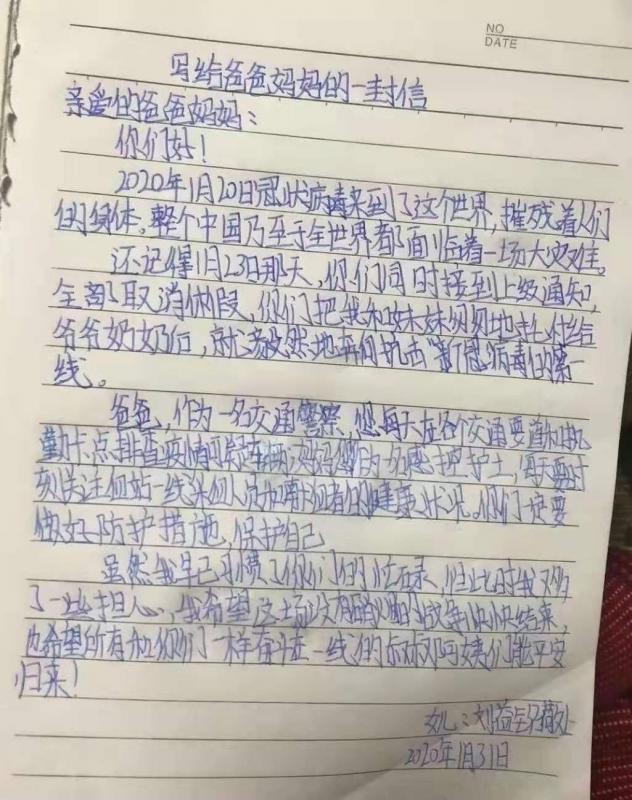 NO
DATE
写给爸爸妈妈的一封信
亲爱的爸爸妈妈：
你们好！
2020年1月20日冠状病毒来到了这个世界，摧残着人们
的身体。整个中国乃至于全世界都面临着一场大灾难。
还记得1月23日那天，你们同时接到上级通知，
全部取消休假，你们把我和妹妹匆匆地托付给
爷爷奶奶后，就毅然地奔向抗击“新冠”病毒的第一
线。
爸爸，作为一名交通警察，您每天在各个交通要道和执
勤卡点排查疫情可疑车辆；妈妈作为一名医护士，每天要时
刻关注一线人员和患者的健康状况。你们一定要
做好防护措施，保护自己
虽然我早已习惯了你们的忙碌，但此时我又多
了一些担心，我希望这场没有硝烟的战争快快结束，
也希望所有和你们一样奋斗在一线的叔叔阿姨们能平安
归来！
女儿：刘益
2020年1月31日